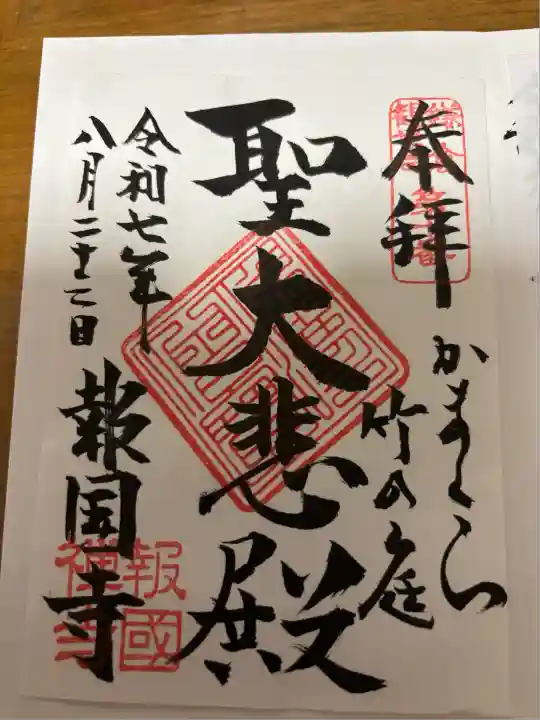 奉拝
かまくら
竹の庭
聖大悲殿
令和七年
八月二十二日
報国寺
報國
禅寺